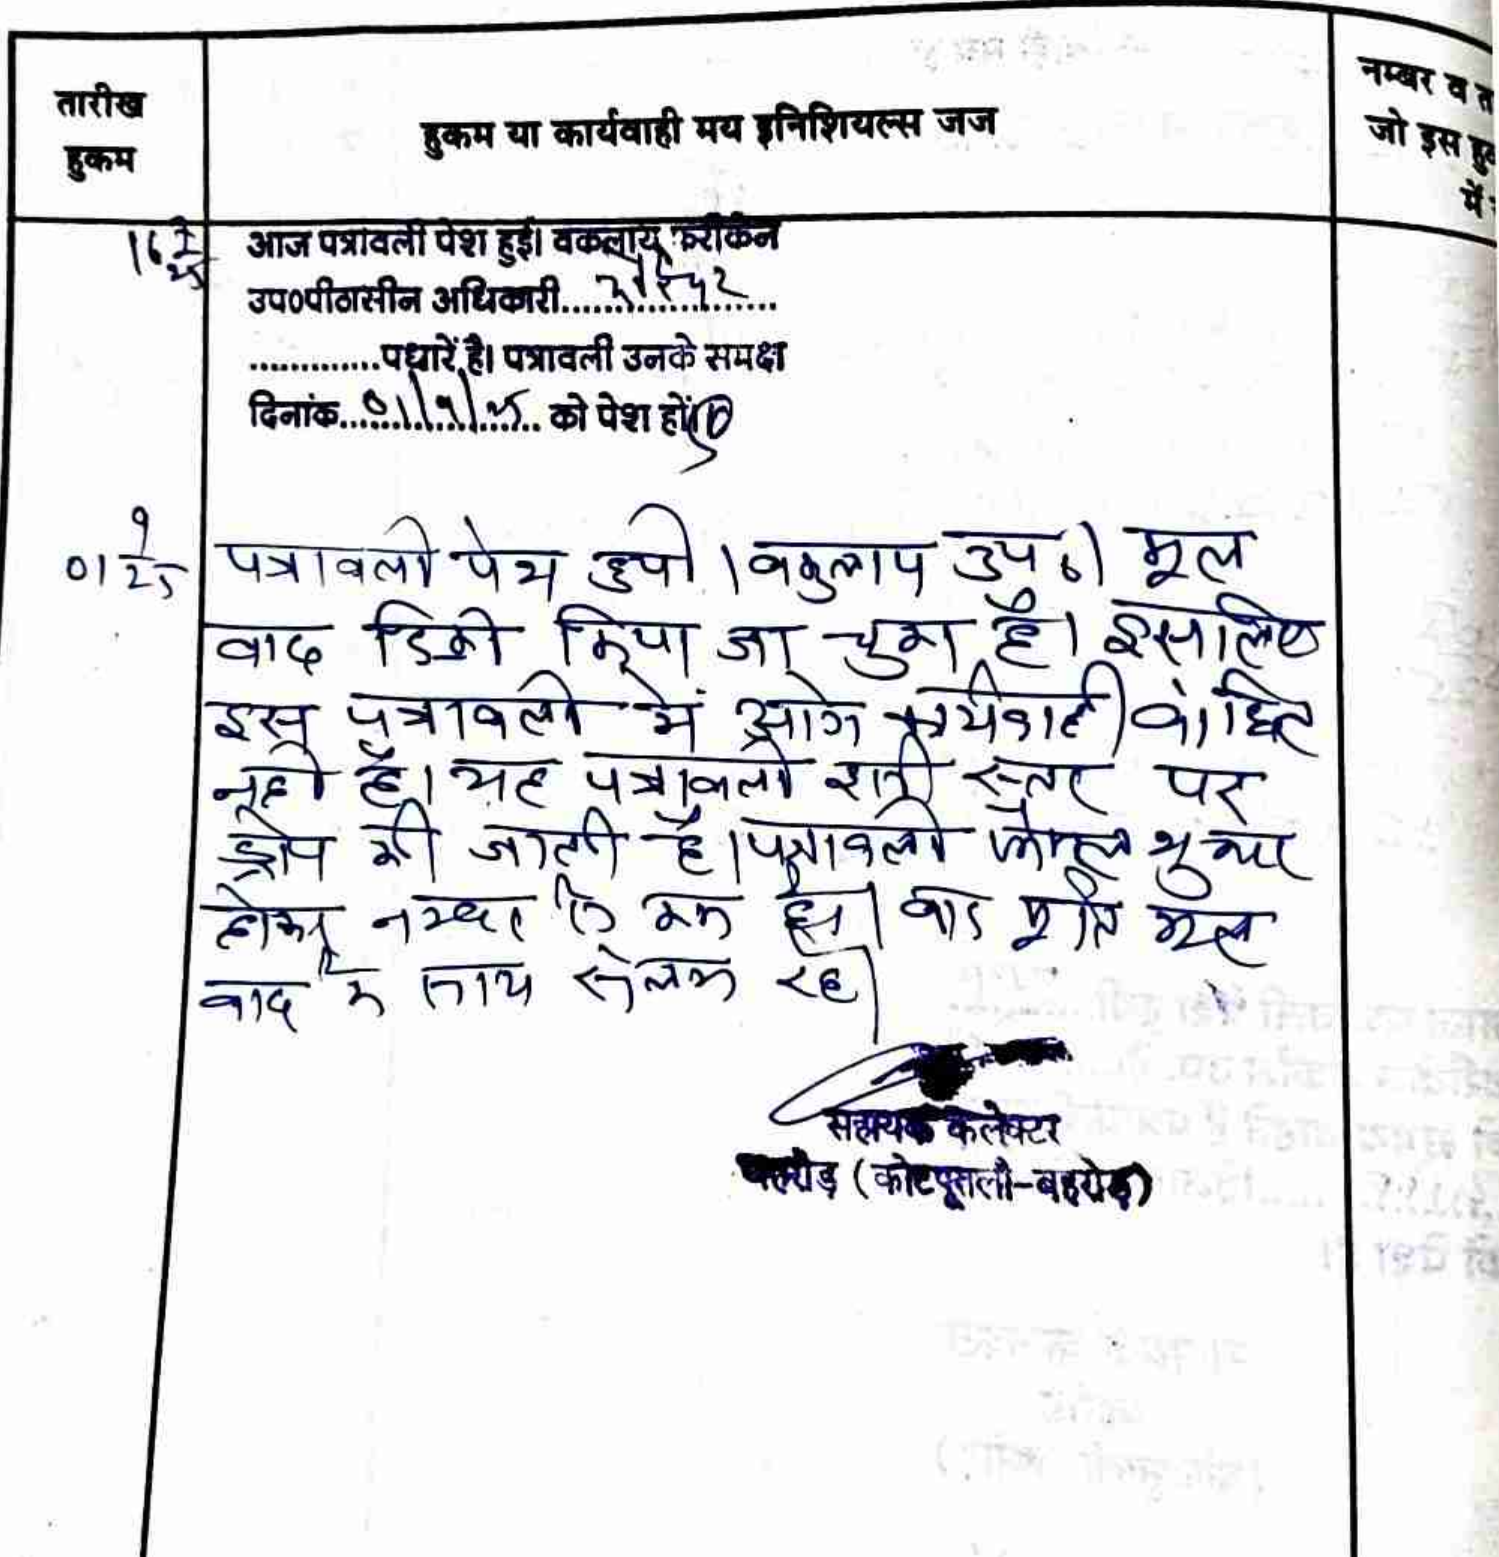 तारीख
हुकम
हुकम या कार्यवाही मय इनिशियल्स जज
नम्बर व त
जो इस हु
में
16 7/25
आज पत्रावली पेश हुई। वकलाय फरीकेन
उप०पीठासीन अधिकारी....................
.............पधारें है। पत्रावली उनके समक्ष
दिनांक...01/9/25... को पेश हों।
01 9/25
पत्रावली पेश हुयी। वकुलाय उप०। मूल
वाद डिक्री किया जा चुका है। इसलिए
इस पत्रावली में आगे कार्यवाही वांछित
नही है। यह पत्रावली इसी स्तर पर
ड्रोप की जाती है। पत्रावली फैसल शुमार
होकर नम्बर से कम हो। बाद पूर्ति मूल
वाद के साथ संलग्न रहे।
सहायक कलेक्टर
बहरोड़ (कोटपूतली-बहरोड़)